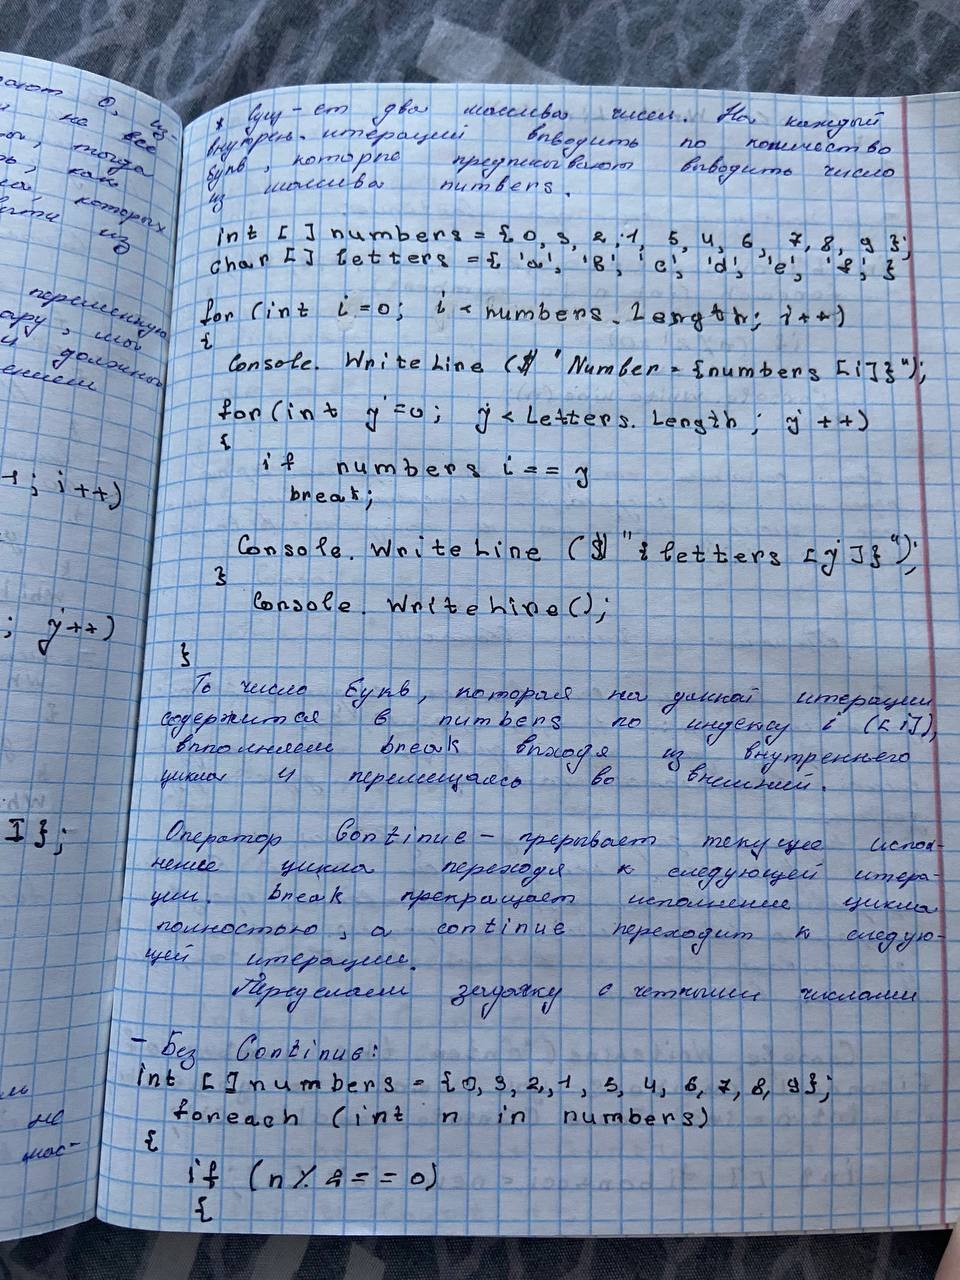 ают 0, из-
не все
, тогда
, как
которых
из
переменную
ару, мы
и должно
ением
1; i++)
; j++)
I};
не
мас-
* Сущ-ет два массива чисел. На каждый
внутрен. итераций выводить по количество
букв, которые предписывают выводить число
из массива numbers.
int [ ] numbers = { 0, 3, 2, 1, 5, 4, 6, 7, 8, 9 };
char [ ] letters = { 'a', 'B', 'c', 'd', 'e', 'f'; }
for (int i=0; i < numbers. Length; i++)
{
Console. WriteLine ($ "Number = {numbers [i]}");
for (int j=0; j < Letters. Length; j ++)
{
if numbers i == j
break;
Console. WriteLine ($ "{ letters [j]}");
}
Console. WriteLine();
}
То число букв, которая на данной итерации
содержится в numbers по индексу i ([i]),
выполняем break выходя из внутреннего
цикла и перемещаясь во внешний.
Оператор Continue – прерывает текущие испол-
нение цикла переходя к следующей итера-
ции. break прекращает исполнение цикла
полностью, а continue переходит к следую-
щей итерации.
Переделаем задачку с четными числами
– Без Continue:
int [ ] numbers = {0, 3, 2, 1, 5, 4, 6, 7, 8, 9};
foreach (int n in numbers)
{
if (n % 2 = = 0)
{